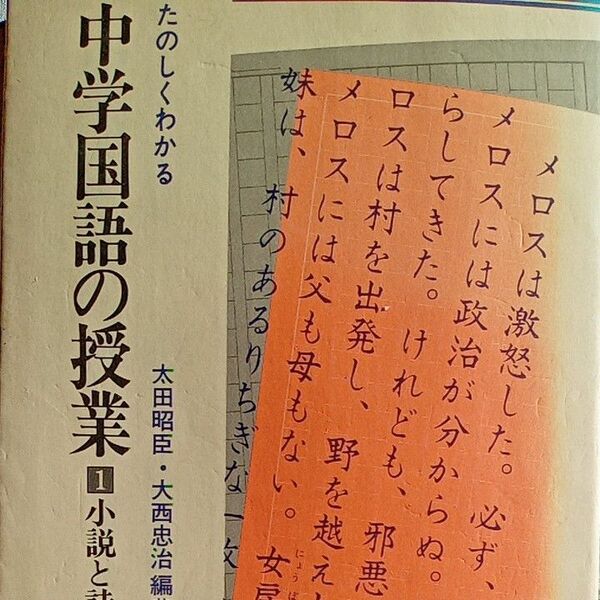 たのしくわかる
中学国語の授業
1 小説と詩
太田昭臣・大西忠治 編
メロスは激怒した。必ず、
メロスには政治が分からぬ。
らしてきた。けれども、邪悪
ロスは村を出発し、野を越え
メロスには父も母もない。女房
にょうぼ
妹は、村のあるりちぎな一